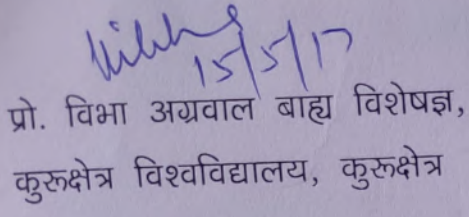 15/5/17
प्रो. विभा अग्रवाल बाह्य विशेषज्ञ,
कुरूक्षेत्र विश्वविद्यालय, कुरूक्षेत्र